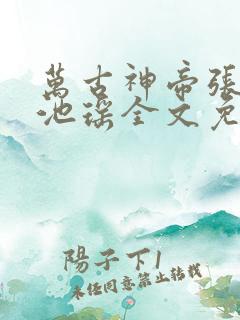 萬古神帝張
池瑤全文免
陽子下1
未任同意禁止轉載